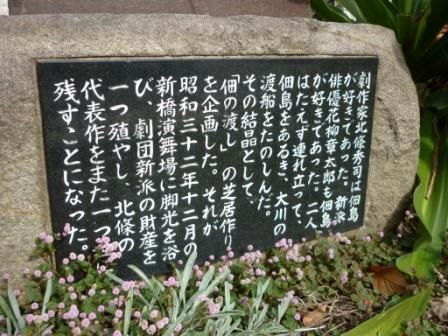 劇作家北條秀司は佃島
が好きであった。新派
俳優花柳章太郎も佃島
が好きであった。二人
はたえず連れ立って、
佃島をあるき、大川の
渡船をたのしんだ。
その結晶として、
「佃の渡し」の芝居作り
を企画した。それが
昭和三十二年十二月の
新橋演舞場に脚光を浴
び、劇団新派の財産を
一つ殖やし、北條の
代表作をまた一つ
残すことになった。